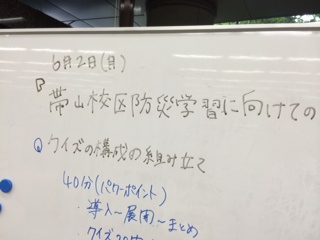 6月2日(月)
帯山校区防災学習に向けての
クイズの構成の組み立て
40分(パワーポイント)
・導入ー展開〜まとめ